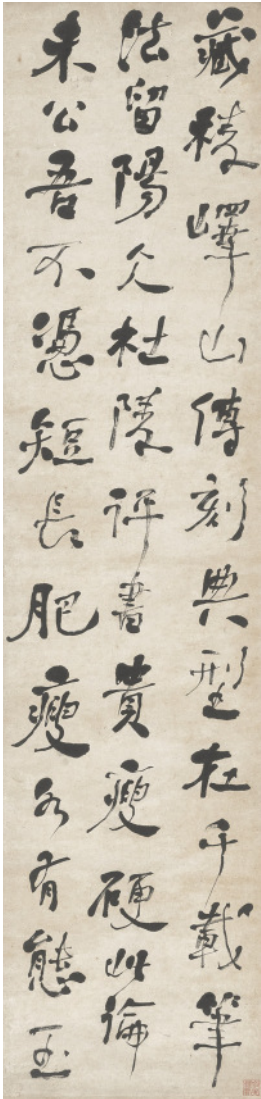 藏稜嶧山傳刻典型在千載筆
法留陽仌杜陵評書貴瘦硬此論
未公吾不憑短長肥瘦各有態玉